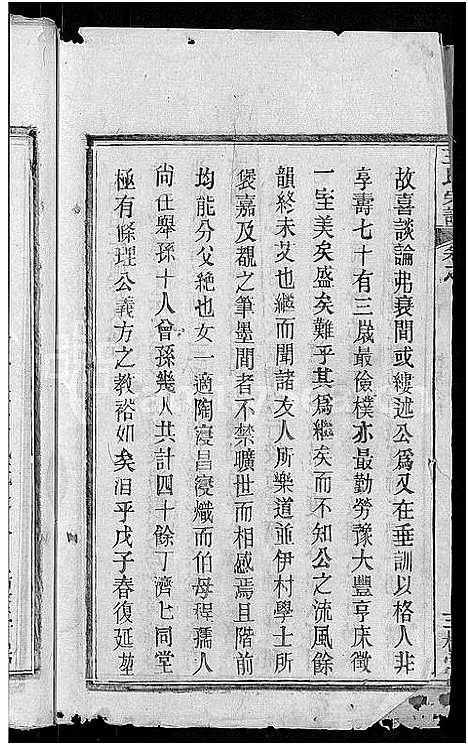 王氏宗譜
三槐堂
故喜談論弗衰間或縷述公為又在垂訓以格人非
享壽七十有三歲最儉樸亦最勤勞豫大豐亨床徵
一室美矣盛矣難乎其為繼矣而不知公之流風餘
韻終未艾也繼而聞諸友人所樂道並伊村學士所
褒嘉及覩之筆墨間者不禁曠世而相感焉且階前
均能分父絶也女一適陶寖昌寖熾而伯母程孺人
尚在舉孫十人曾孫幾人共計四十餘丁濟七同堂
極有條理公義方之教裕如矣洎乎戊子春復延堃